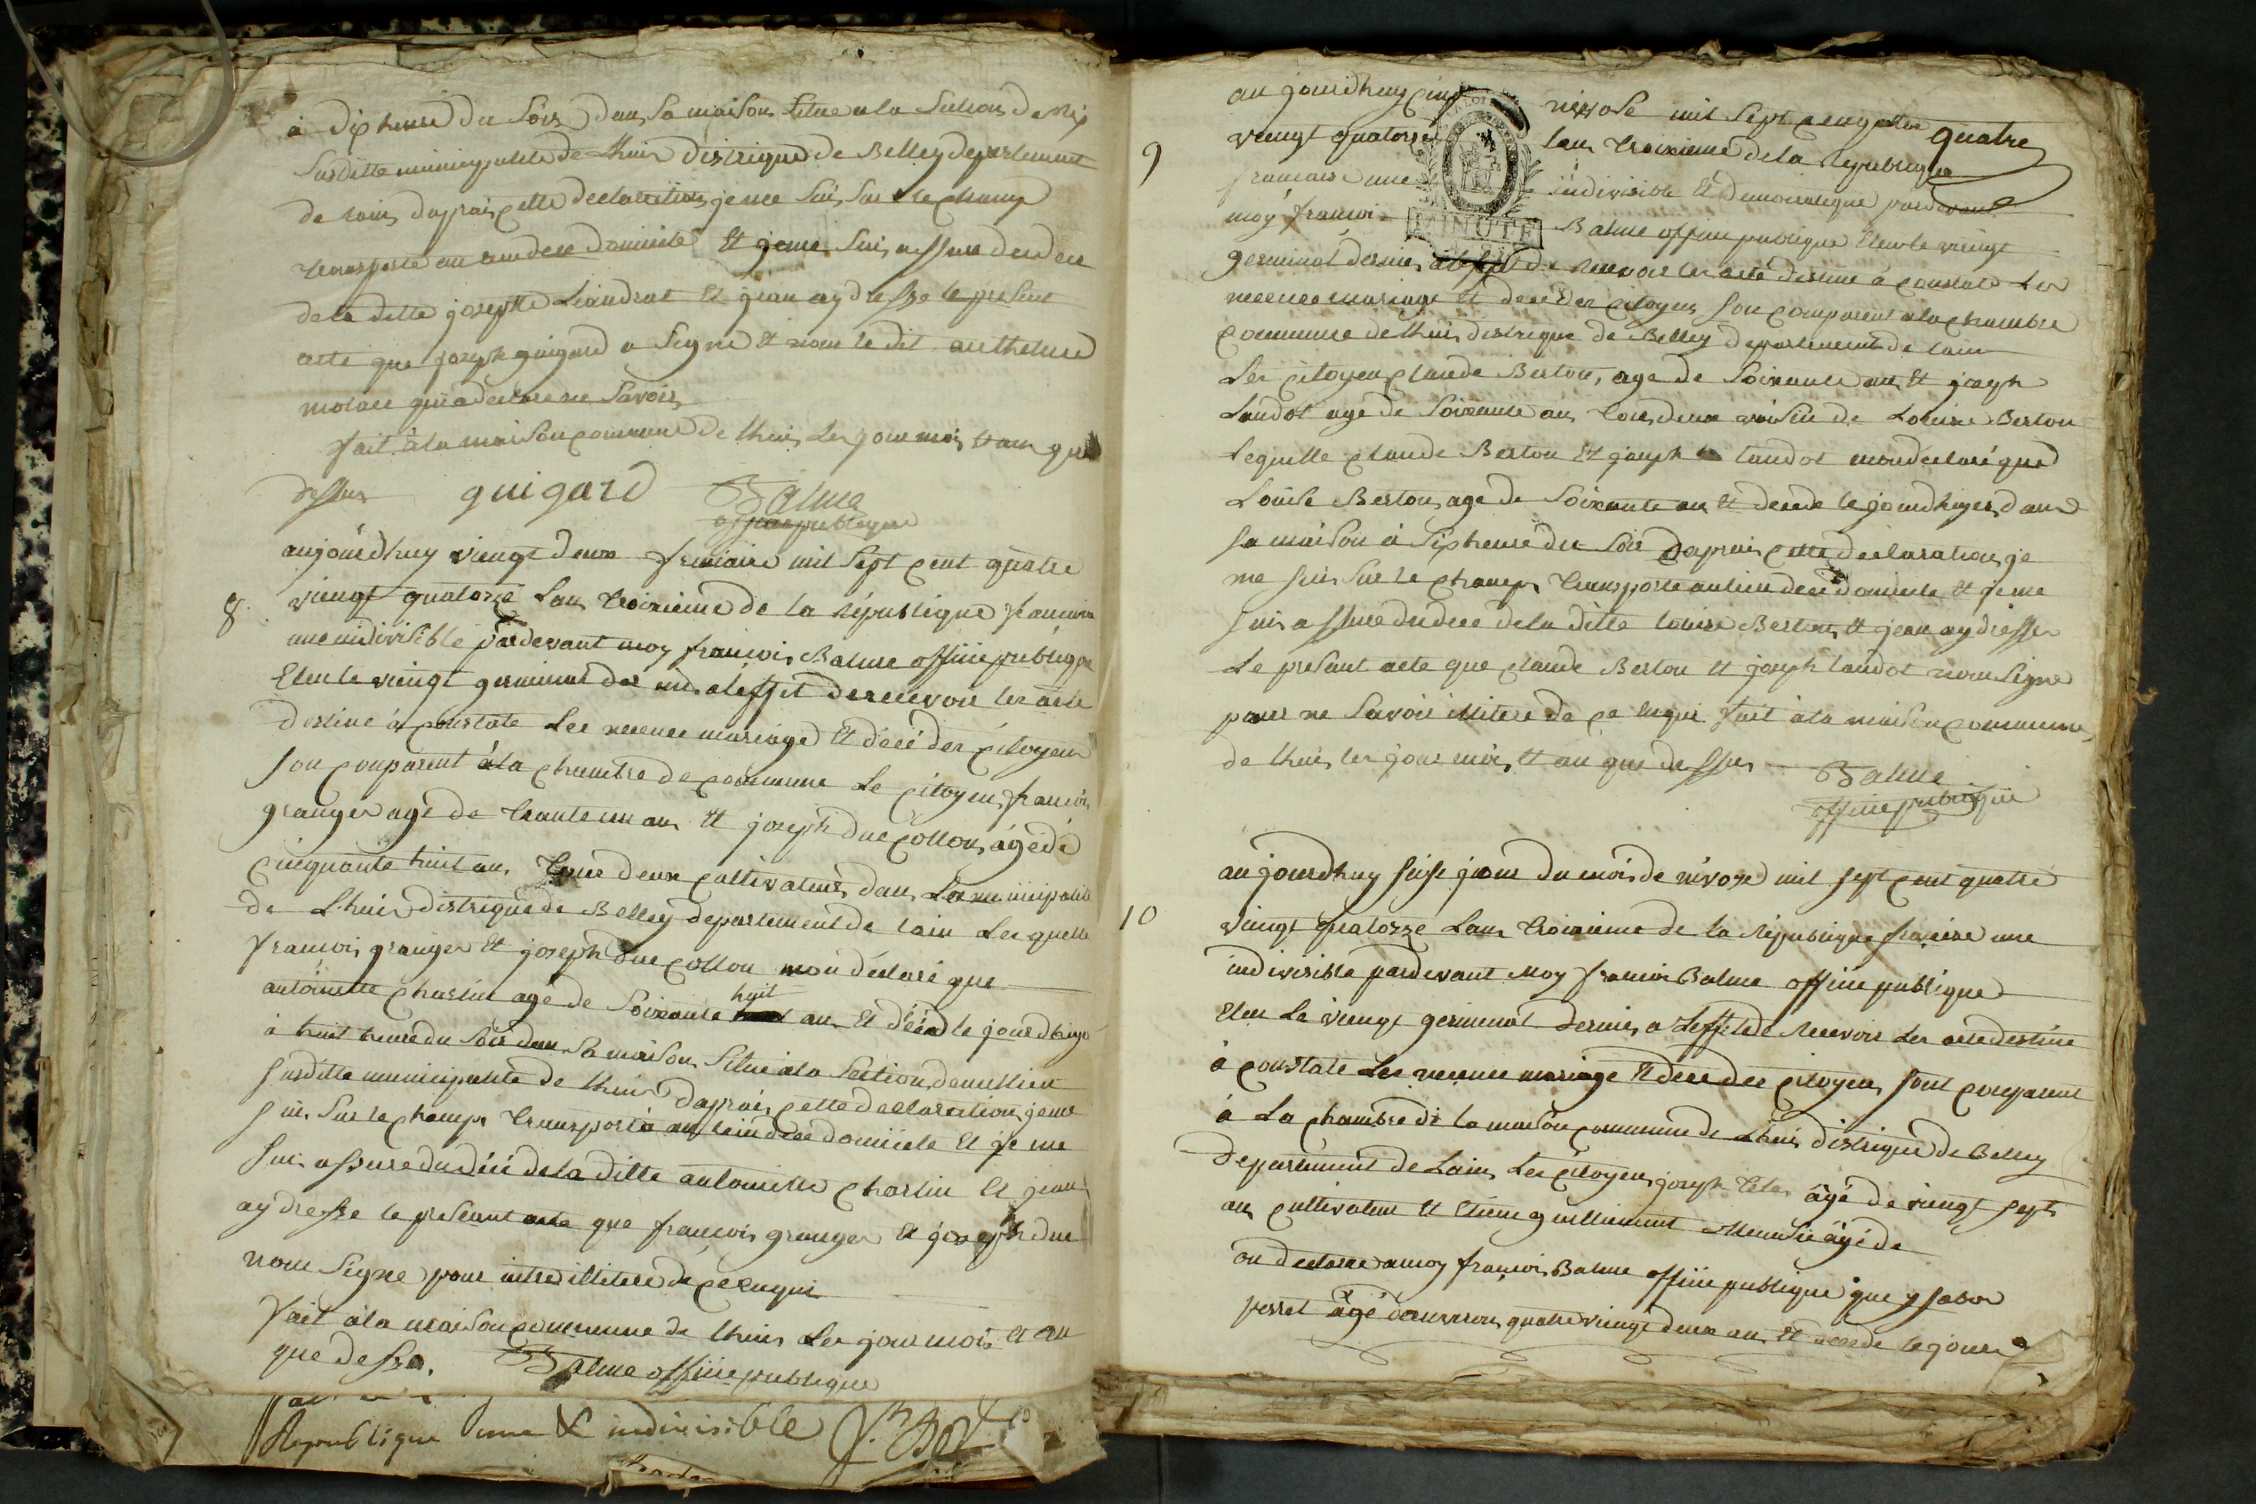 à dix heure du Soir dans Sa maison Situe a la Section de
Susditte municipalité de Lhuis distrique de Belley departement
de lain, daprais cette declaration je me Suis Sur le champ
transporté au lieu de ce domicile Et je me Suis assure du dece
de la ditte josephte Liandrat Et jean ay dresse le present
acte que joseph guigard a Signé Et non le dit anthelme
molare qui a declare ne Savoir
fait à la maison commune de lhuis Les jour mois et an que
dessus guigard Balme
officie publique
aujourdhuy viengt deux frimaire mil Sept cent quatre
8. viengt quatorze Lan troixieme de la république francaise
une indivisible pardevant moy francois Balme officie publique
Eleu le viengt germinal dernié a leffet de recevoir les acte
destine à constate Les naience mariage Et décé des citoyens
Son comparent à la chambre de commune Le citoyen francois
granger agé de trante un an Et joseph duc collon, âgé dé
cinquante huit an, tous deux cultivateur dans La municipalité
de Lhuis distrique de Belley departement de lain Les quelle
francois granger Et joseph duc collon mon déclaré que
antoinette charlin agé de Soixante huit an Et décéde le jourdhuy
à huit heure du Soir dans Sa maison Situe à la Section de millieu
Susditte municipalité de lhuis daprais cette declaration je me
Suis Sur le champs transporté au lieu de ce domicile Et je me
Suis assure du décé de la ditte antoinette charlin Et jean
ay dresse le present acte que francois granger Et joseph duc
nom Signe pour aitre illitere de ce enquis
fait à la maison commune de lhuis Les jour mois et an
que dessu. Balme officie publique
Republique une & indivisible
aujourdhuy cinq nivose mil Sept cengt quatre
9 viengt quatorze lan troixieme de la republique
francaise une indivisible Et democratique pardevant
moy francois MINUTE Balme officie publique Eleu le vieingt
germinal dernié, a leffet de recevoir les acte destine à constate Les
naience mariage Et decé des citoyens Son comparent à la chambre
commune de lhuis distrique de Belley departement de lain
Les citoyen claude Berton, age de Soixante an, Et joseph
Landot agé de Soixante an tous deux voisin de Louise Berton
Lequelle claude Berton Et joseph landot mon declaré que
Louise Berton age de Soixante an Et decede le jourdhuyer dans
Sa maison à Six heure du Soir Daprais cette declaration je
me Suis Sur le champs transporte au lieu de ce domicile Et je me
Suis assure du dece de la ditte louise Berton, Et jean ay dresser
Le presant acte que claude Berton Et joseph landot nom Signe
pour ne Savoir illitere de ce enquis fait à la maison commune
de lhuis les jour mois, Et an que dessus Balme
officie publique
aujourdhuy Seise jour du mois de nivose mil Sept cent quatre
10 viengt quatorze Lan troixieme de la république francaise une
indivisible pardevant moy francois Balme officie publique
Eleu Le vieingt germinal dernié, a Leffet de recevoir Les acte destine
à constate Les naience mariage Et dece des citoyen, Sont comparent
à La chambre de la maison commune de Lhuis distrique de Belley
departement de Lain, Les citoyen joseph âgé de vieingt Sept
an, cultivateur Et Etiene guilliermet âgé de
on declarer a moy francois Balme officie publique que
perret âgé danviron quatre vieingt deux an, Et decede le jour